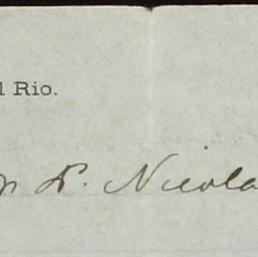 l Rio.
P. Nicola